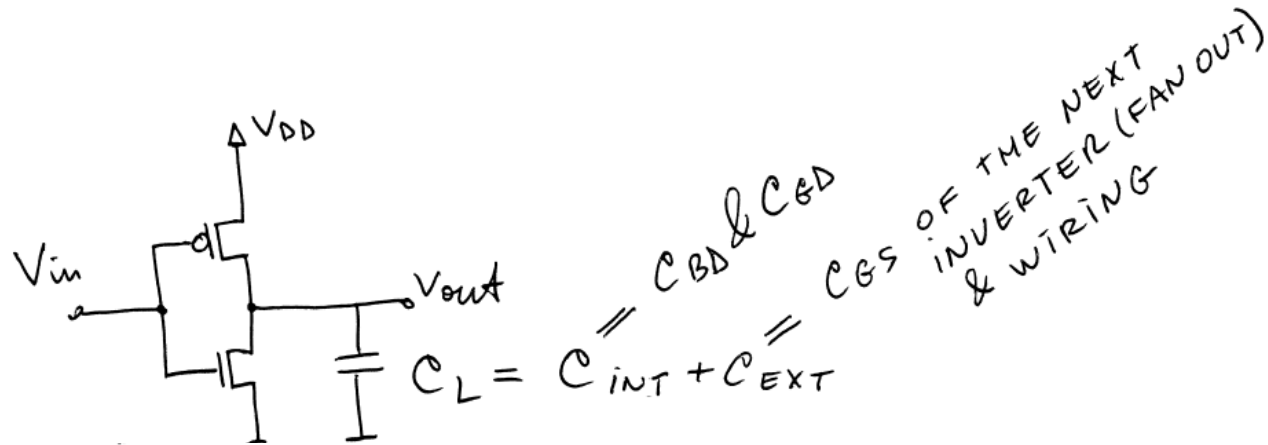 VDD
Vin
Vout
CL = CINT + CEXT
CBD & CGD
CGS OF THE NEXT
INVERTER (FAN OUT)
& WIRING